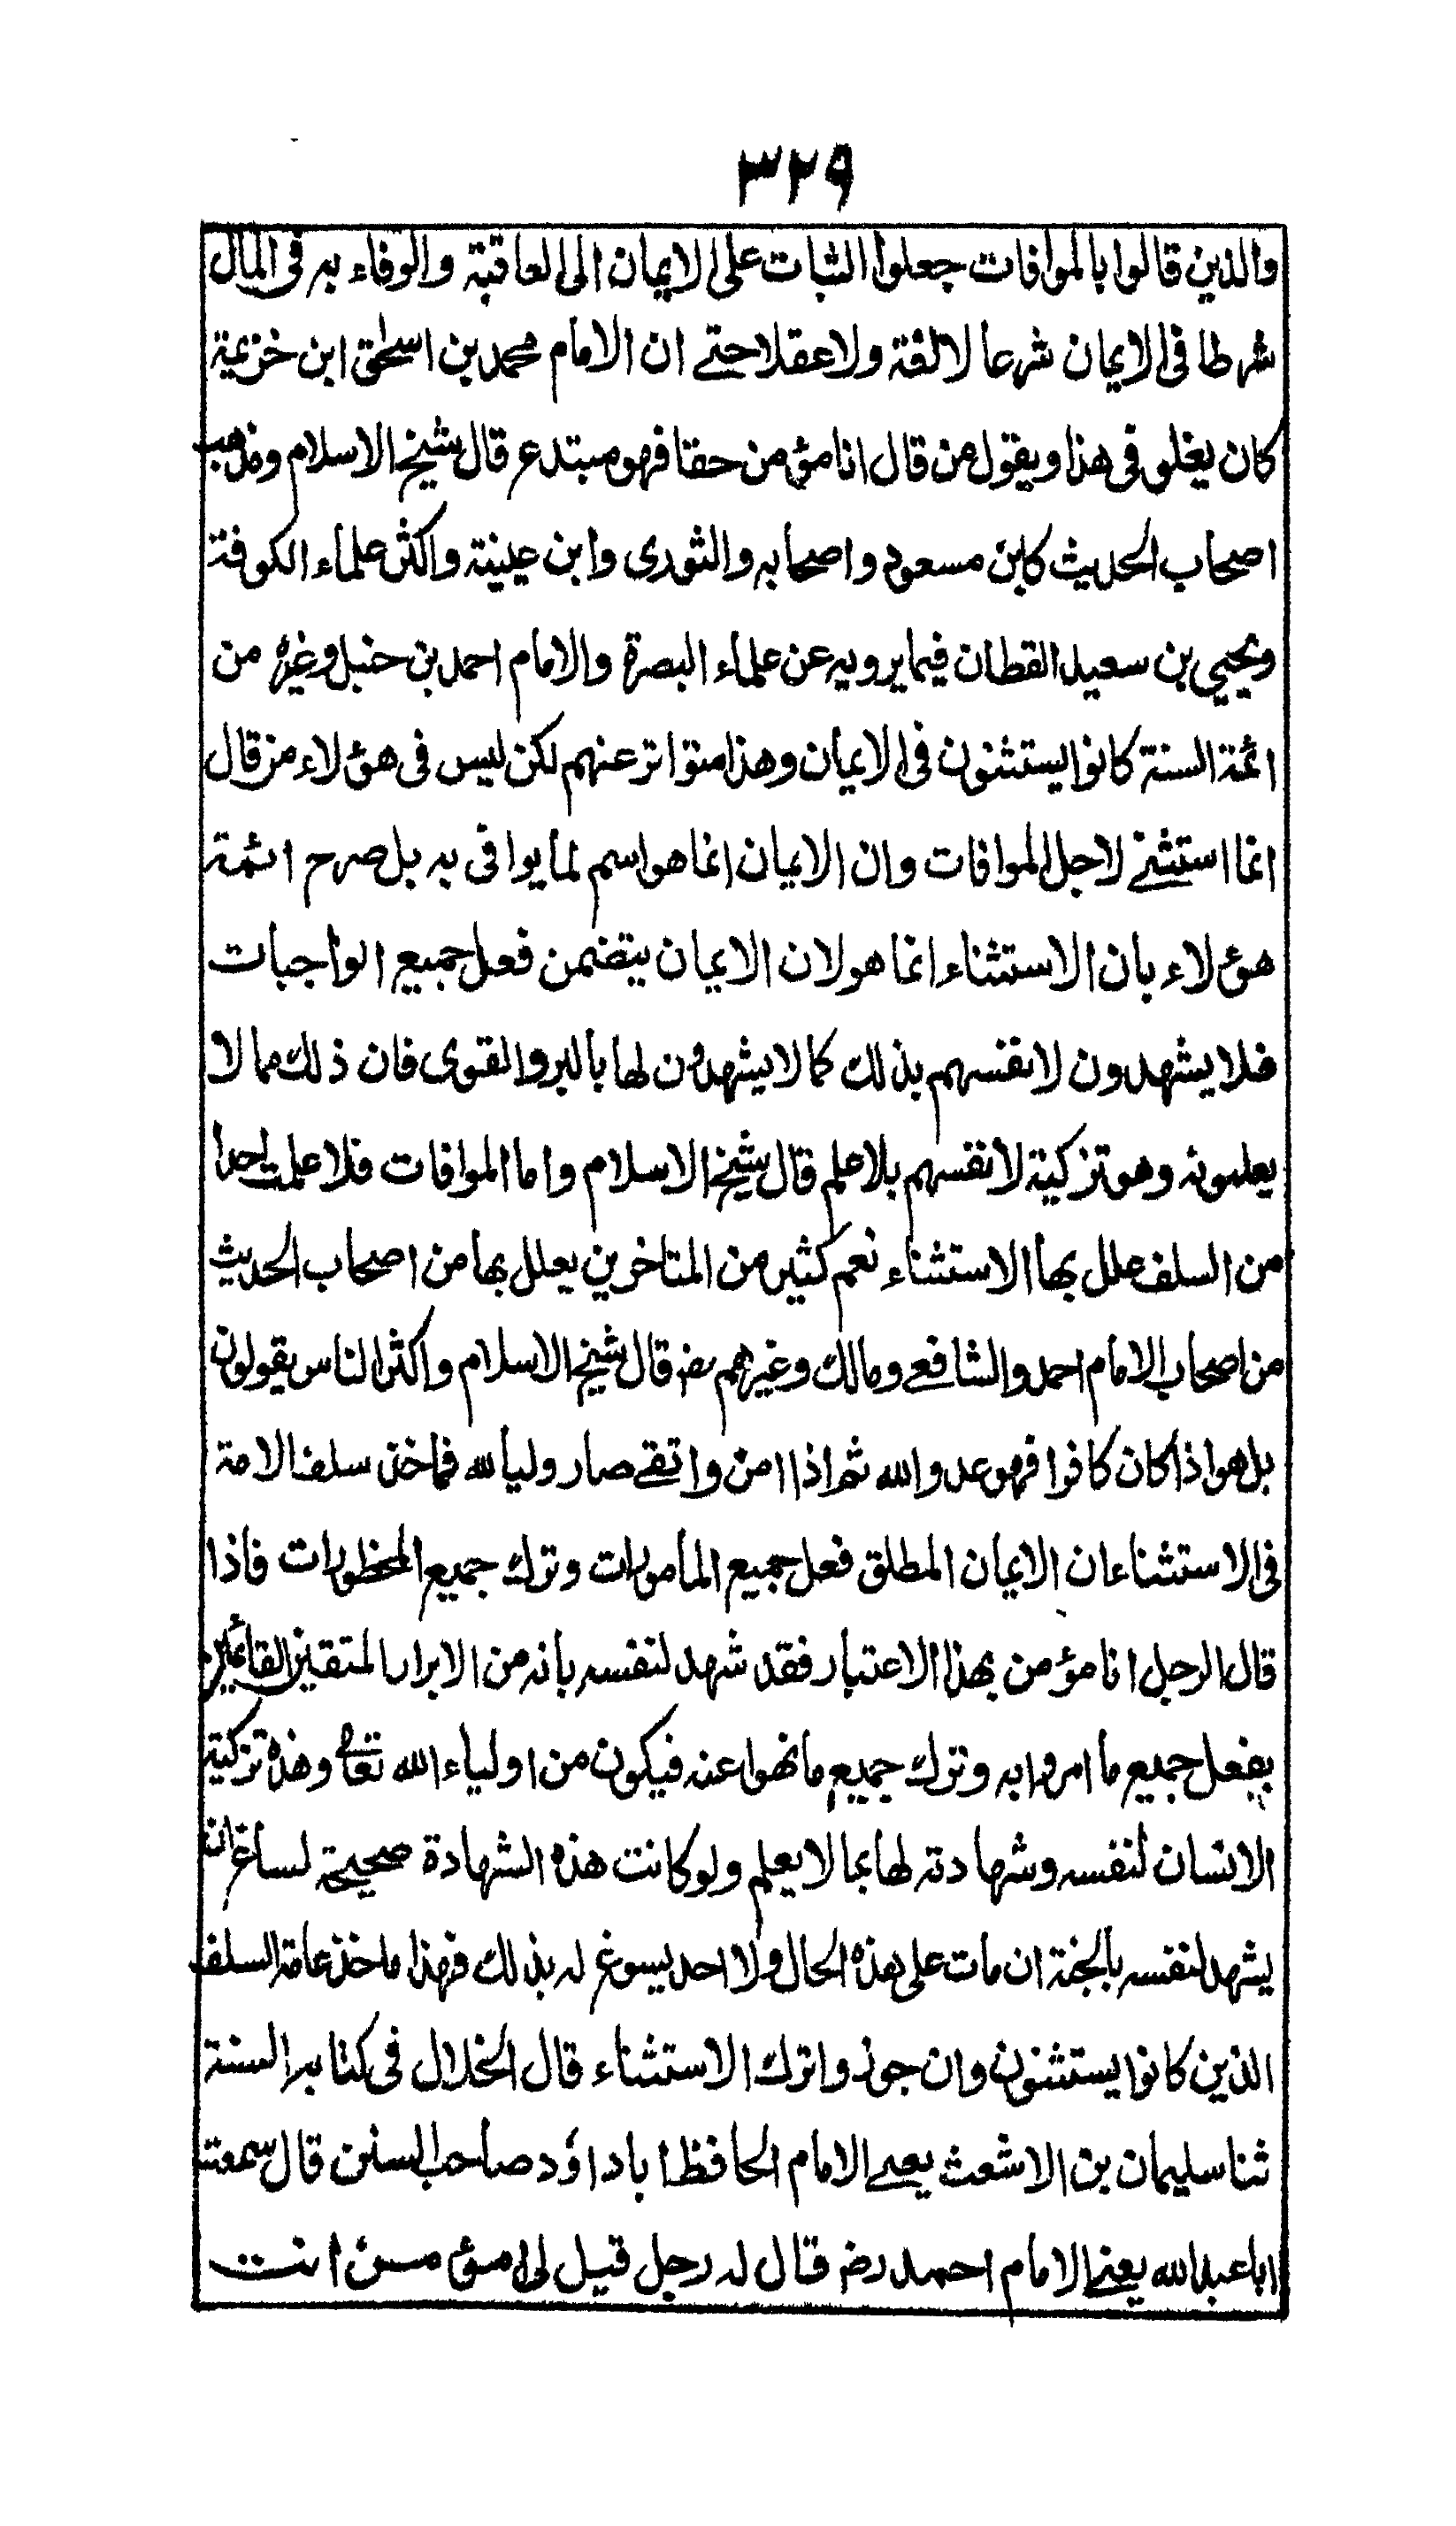 ٣٢٩
والذين قالوا بالموافات جعلوا الثبات على الايمان الى العاقبة والوفاء به فى المال
شرطا فى الايمان شرعا لا لغة ولا عقلا حتے ان الامام محمد بن اسحق ابن خزيمة
كان يغلو فى هذا ويقول من قال انا مؤمن حقا فهو مبتدع قال شيخ الاسلام ومذهب
اصحاب الحديث كابن مسعود واصحابه والثورى وابن عيينة واكثر علماء الكوفة
ويحيي بن سعيد القطان فيما يرويه عن علماء البصرة والامام احمد بن حنبل وغيره من
ائمة السنة كانوا يستثنون فى الايمان وهذا متواتر عنهم لكن ليس فى هؤلاء من قال
انما استثنے لاجل الموافات وان الايمان انما هو اسم لما يوافى به بل صرح ائمة
هؤلاء بان الاستثناء انما هو لان الايمان يتضمن فعل جميع الواجبات
فلا يشهدون لانفسهم بذلك كما لا يشهدون لها بالبر والتقوى فان ذلك مما لا
يعلمونه وهو تزكية لانفسهم بلا علم قال شيخ الاسلام واما الموافات فلا علمت احدا
من السلف علل بها الاستثناء نعم كثير من المتاخرين يعلل بها من اصحاب الحديث
من اصحاب الامام احمد والشافعے ومالك وغيرهم رضہ قال شيخ الاسلام واكثر الناس يقولون
بل هو اذا كان كافرا فهو عدو الله ثم اذا امن واتقے صار وليا لله فماخذ سلف الامة
فى الاستثناء ان الايمان المطلق فعل جميع المأمورات وترك جميع المحظورات فاذا
قال الرجل انا مؤمن بهذا الاعتبار فقد شهد لنفسه بانه من الابرار المتقين القائمين
بفعل جميع ما امروا به وترك جميع ما نهوا عنه فيكون من اولياء الله تعالى وهذه تزكية
الانسان لنفسه وشهادته لها بما لا يعلم ولو كانت هذه الشهادة صحيحة لساغ انه
يشهد لنفسه بالجنة ان مات على هذه الحال ولا احد يسوغ له بذلك فهذا ماخذ عامة السلف
الذين كانوا يستثنون وان جوزوا ترك الاستثناء قال الخلال فى كتابه السنة
ثنا سليمان بن الاشعث يعنے الامام الحافظ ابا داؤد صاحب السنن قال سمعت
ابا عبد الله يعنے الامام احمد رضہ قال له رجل قيل لى امؤمن انت